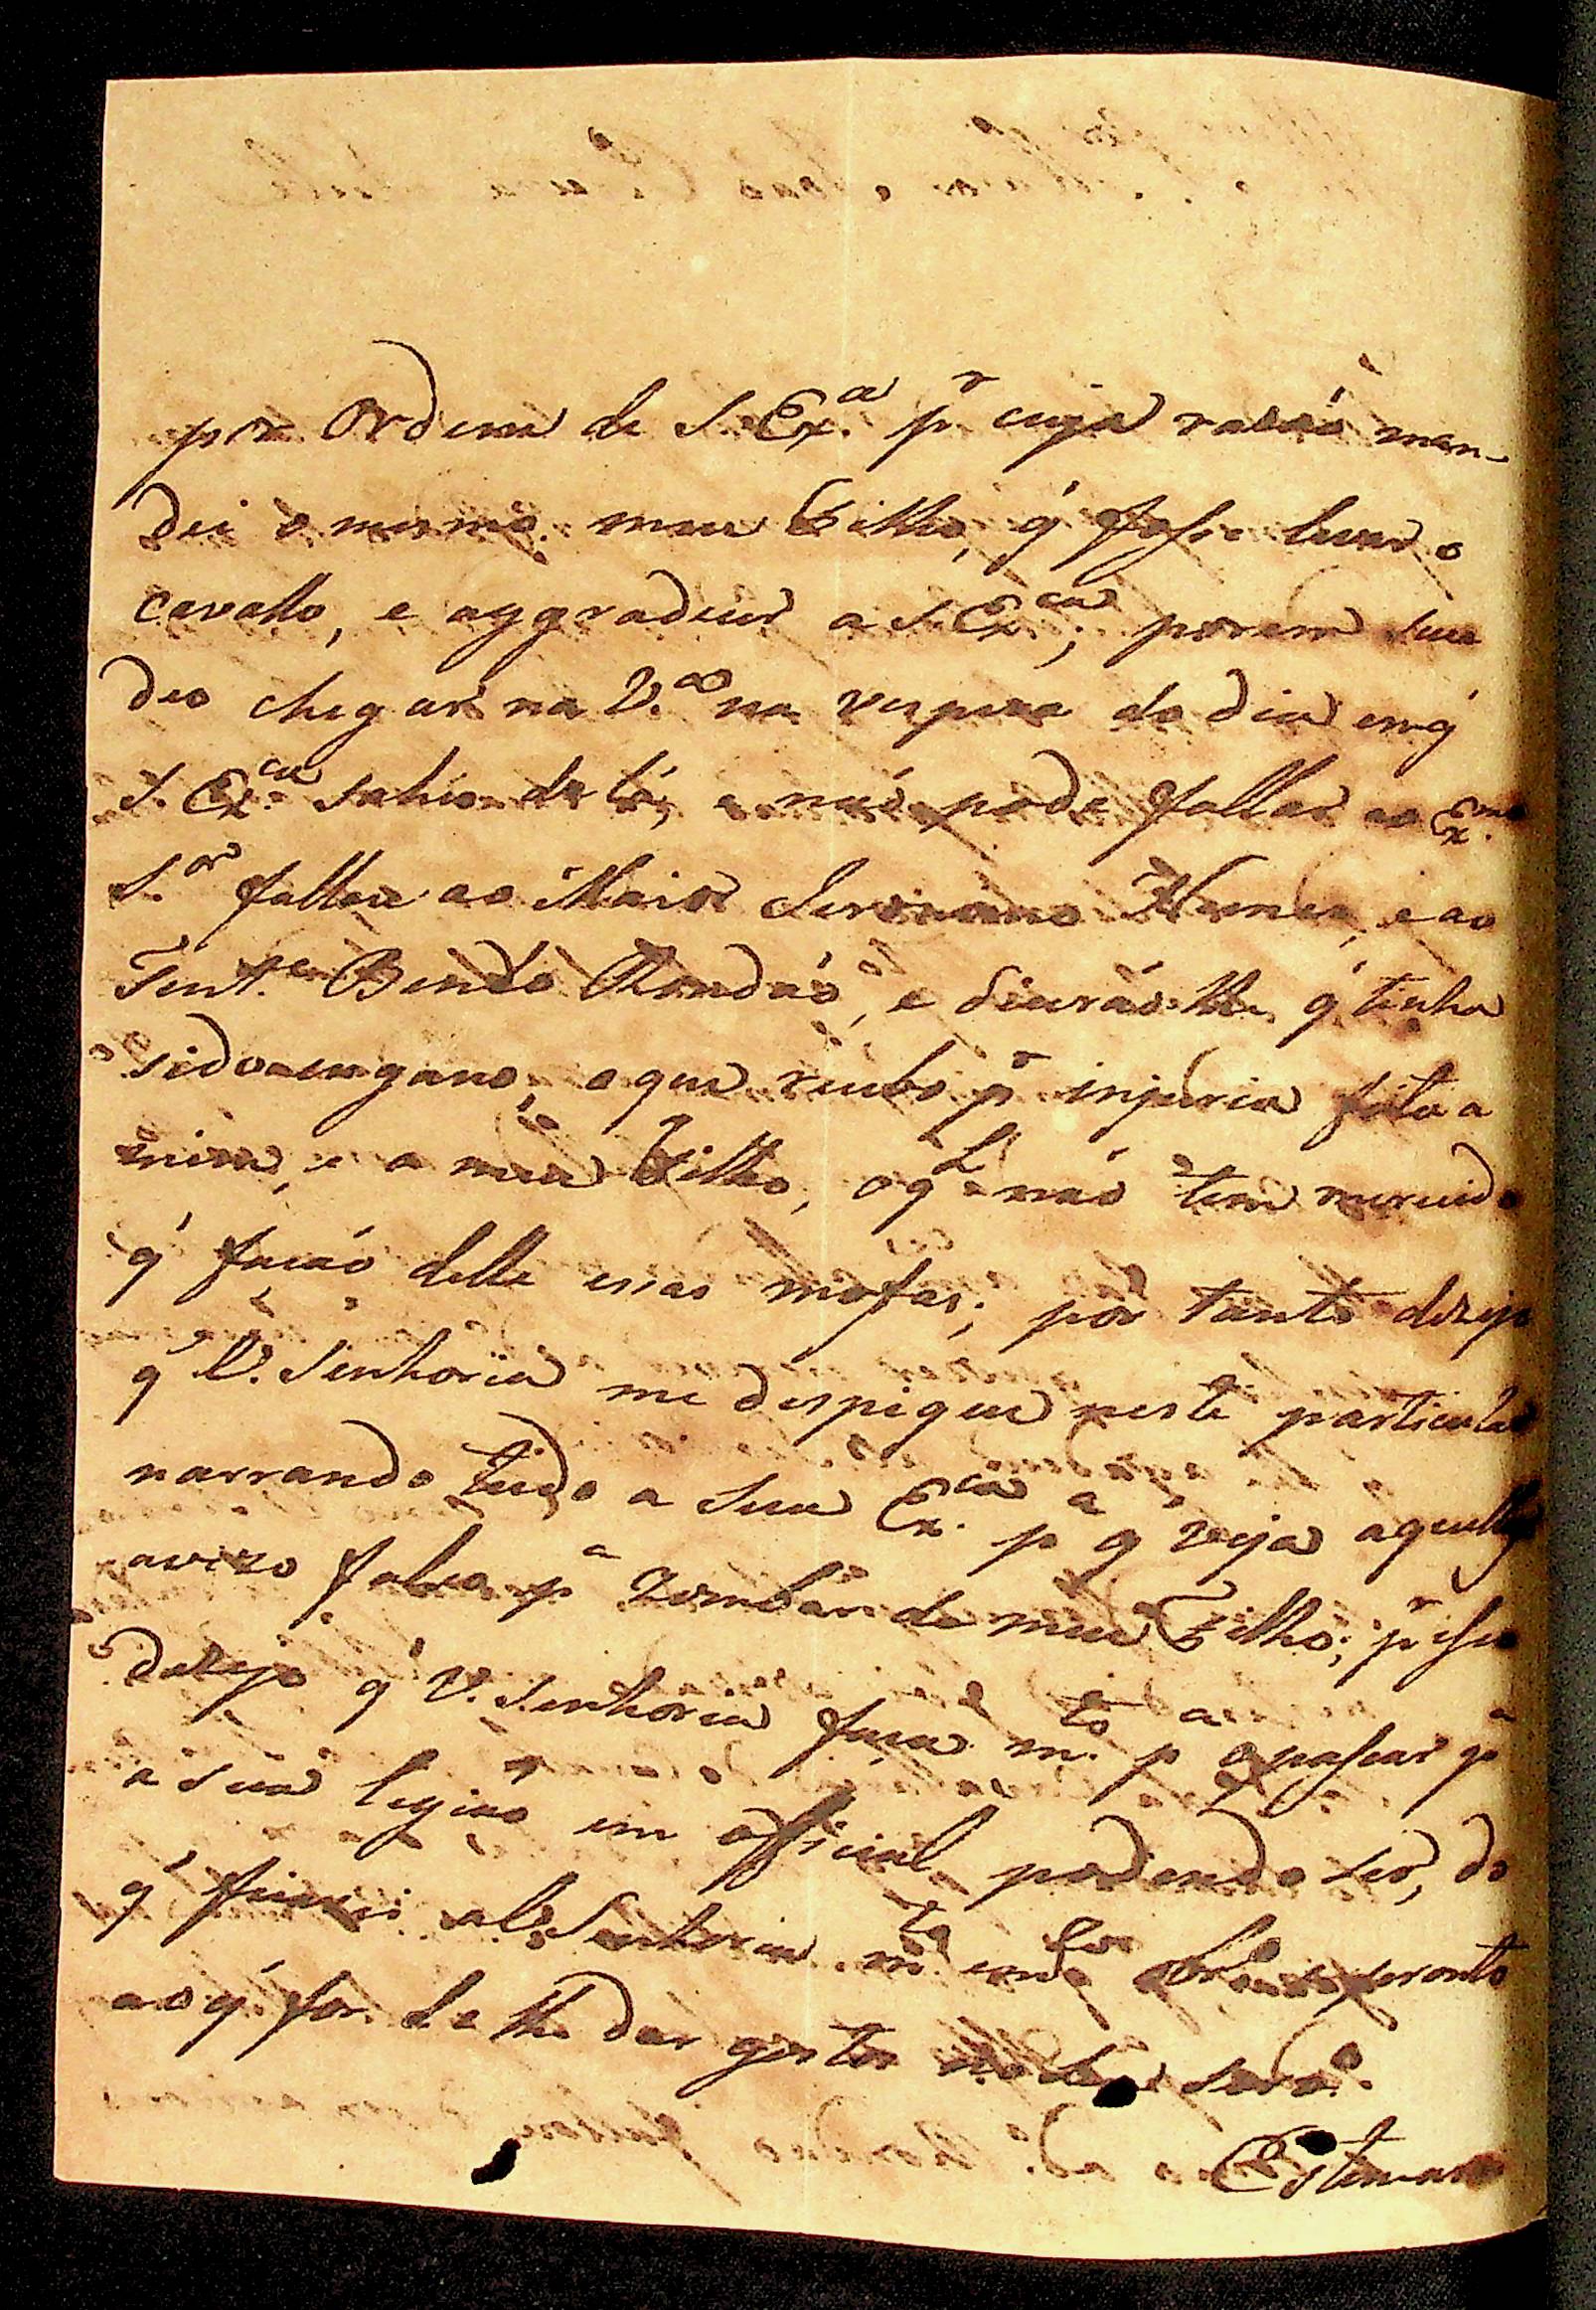 por Ordem de S. Ex.ª p.r cuja rasaó man-
dei o mesmo meu Filho, q' fosse levar o
cavallo, e aggradecer a S. Ex.cia; porem suce
deo chegar na V.ª na vespera do dia em q'
S. Ex.cia sahio de lá, e naó pode fallar ao Ex.mo
S.or fallou ao Maior Jeronimo Xermes, e ao
Tent.e Bento Rondaó, e diceraó-lhe q' tinha
sido engano, o que recebo p.r injuria feita a
mim, e a meu Filho, o q.l naó tem merecido
q' facaó delle essas mofas; por tanto dezejo
q' V. Senhoria me despique neste particular
narrando tudo a Sua Ex.cia p.a q' veja aquelle
avizo falso p.a zombar de meu Filho; p.r isso
dezejo q' V. Senhoria faça m.to p.a o passar p.a
a sua legiaó em official, podendo ser, do
q' ficarei a V. Senhoria m.to em obrig pronto
ao q' for de lhe dar gosto
Estimarei